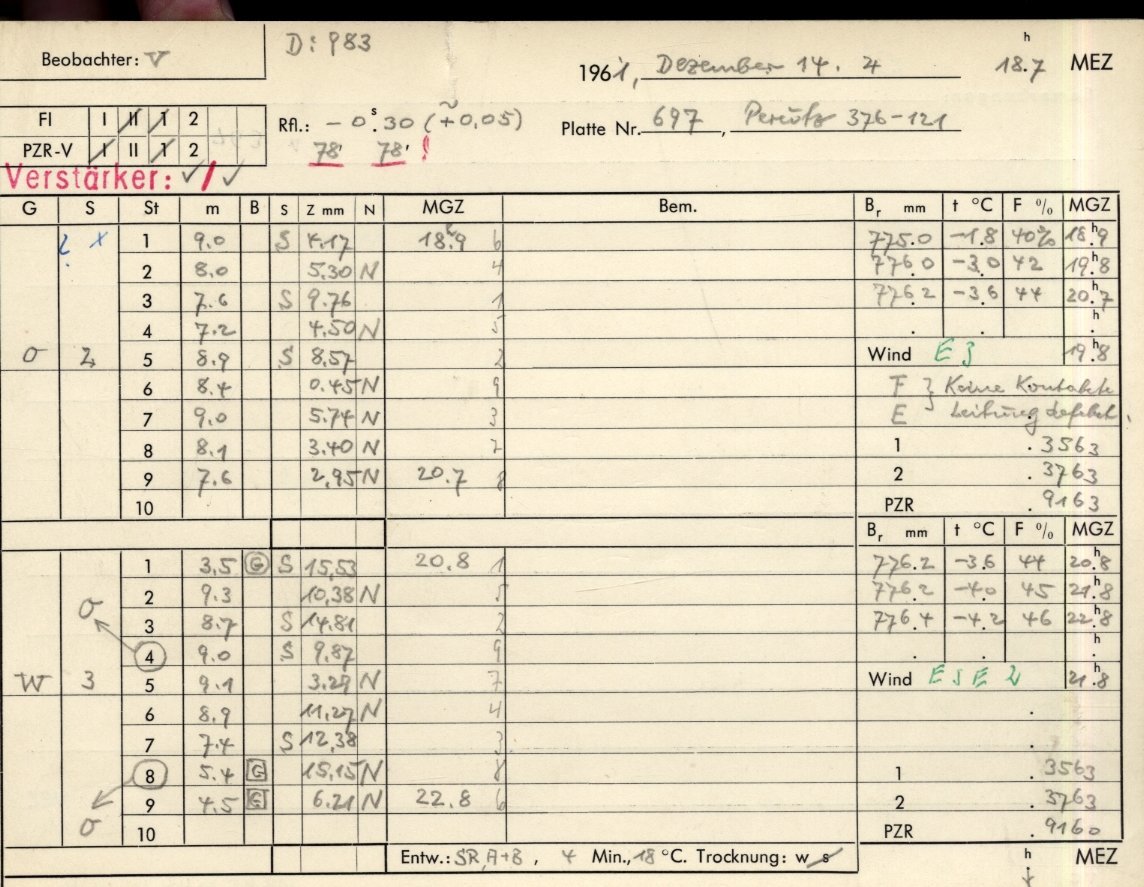 D: 983
Beobachter: V
1961, Dezember 14. 4 18.7 h MEZ
FI I II 1 2
Rfl.: - 0 s. 30 (+0,05)
Platte Nr. 697, Perutz 376-121
PZR-V I II 1 2
78' 78' !
Verstärker: ✓/✓
G S St m B S Z mm N MGZ Bem. Br mm t °C F % MGZ
? x 1 9.0 S 4.17 18h.9 6 775.0 -1.8 40% 18h.9
2 8.0 5.30 N 4 776.0 -3.0 42 19h.8
3 7.6 S 9.76 1 776.2 -3.6 44 20h.7
4 7.2 4.50 N 5 . . h.
O 2 5 8.9 S 8.57 2 Wind E 3 19h.8
6 8.4 0.45 N 9 F } Keine Kontakte
7 9.0 5.74 N 3 E Leitung defekt.
8 8.1 3.40 N 7 1 .3563
9 7.6 2,95 N 20.7 8 2 .3763
10 PZR .9163
Br mm t °C F % MGZ
1 3,5 G S 15,53 20.8 1 776.2 -3.6 44 20h.8
2 9.3 10,38 N 5 776.2 -4.0 45 21h.8
O 3 8.7 S 14.81 2 776.4 -4.2 46 22h.8
4 9.0 S 9.87 9 . . h.
W 3 5 9.1 3.29 N 7 Wind ESE 2 21h.8
6 8.9 11,27 N 4 .
7 7.4 S 12,38 3 .
8 5.4 G 15,15 N 8 1 .3563
9 4.5 G 6.21 N 22.8 6 2 .3763
O 10 PZR .9160
Entw.: SR A+B, 4 Min., 18 °C. Trocknung: w s h MEZ